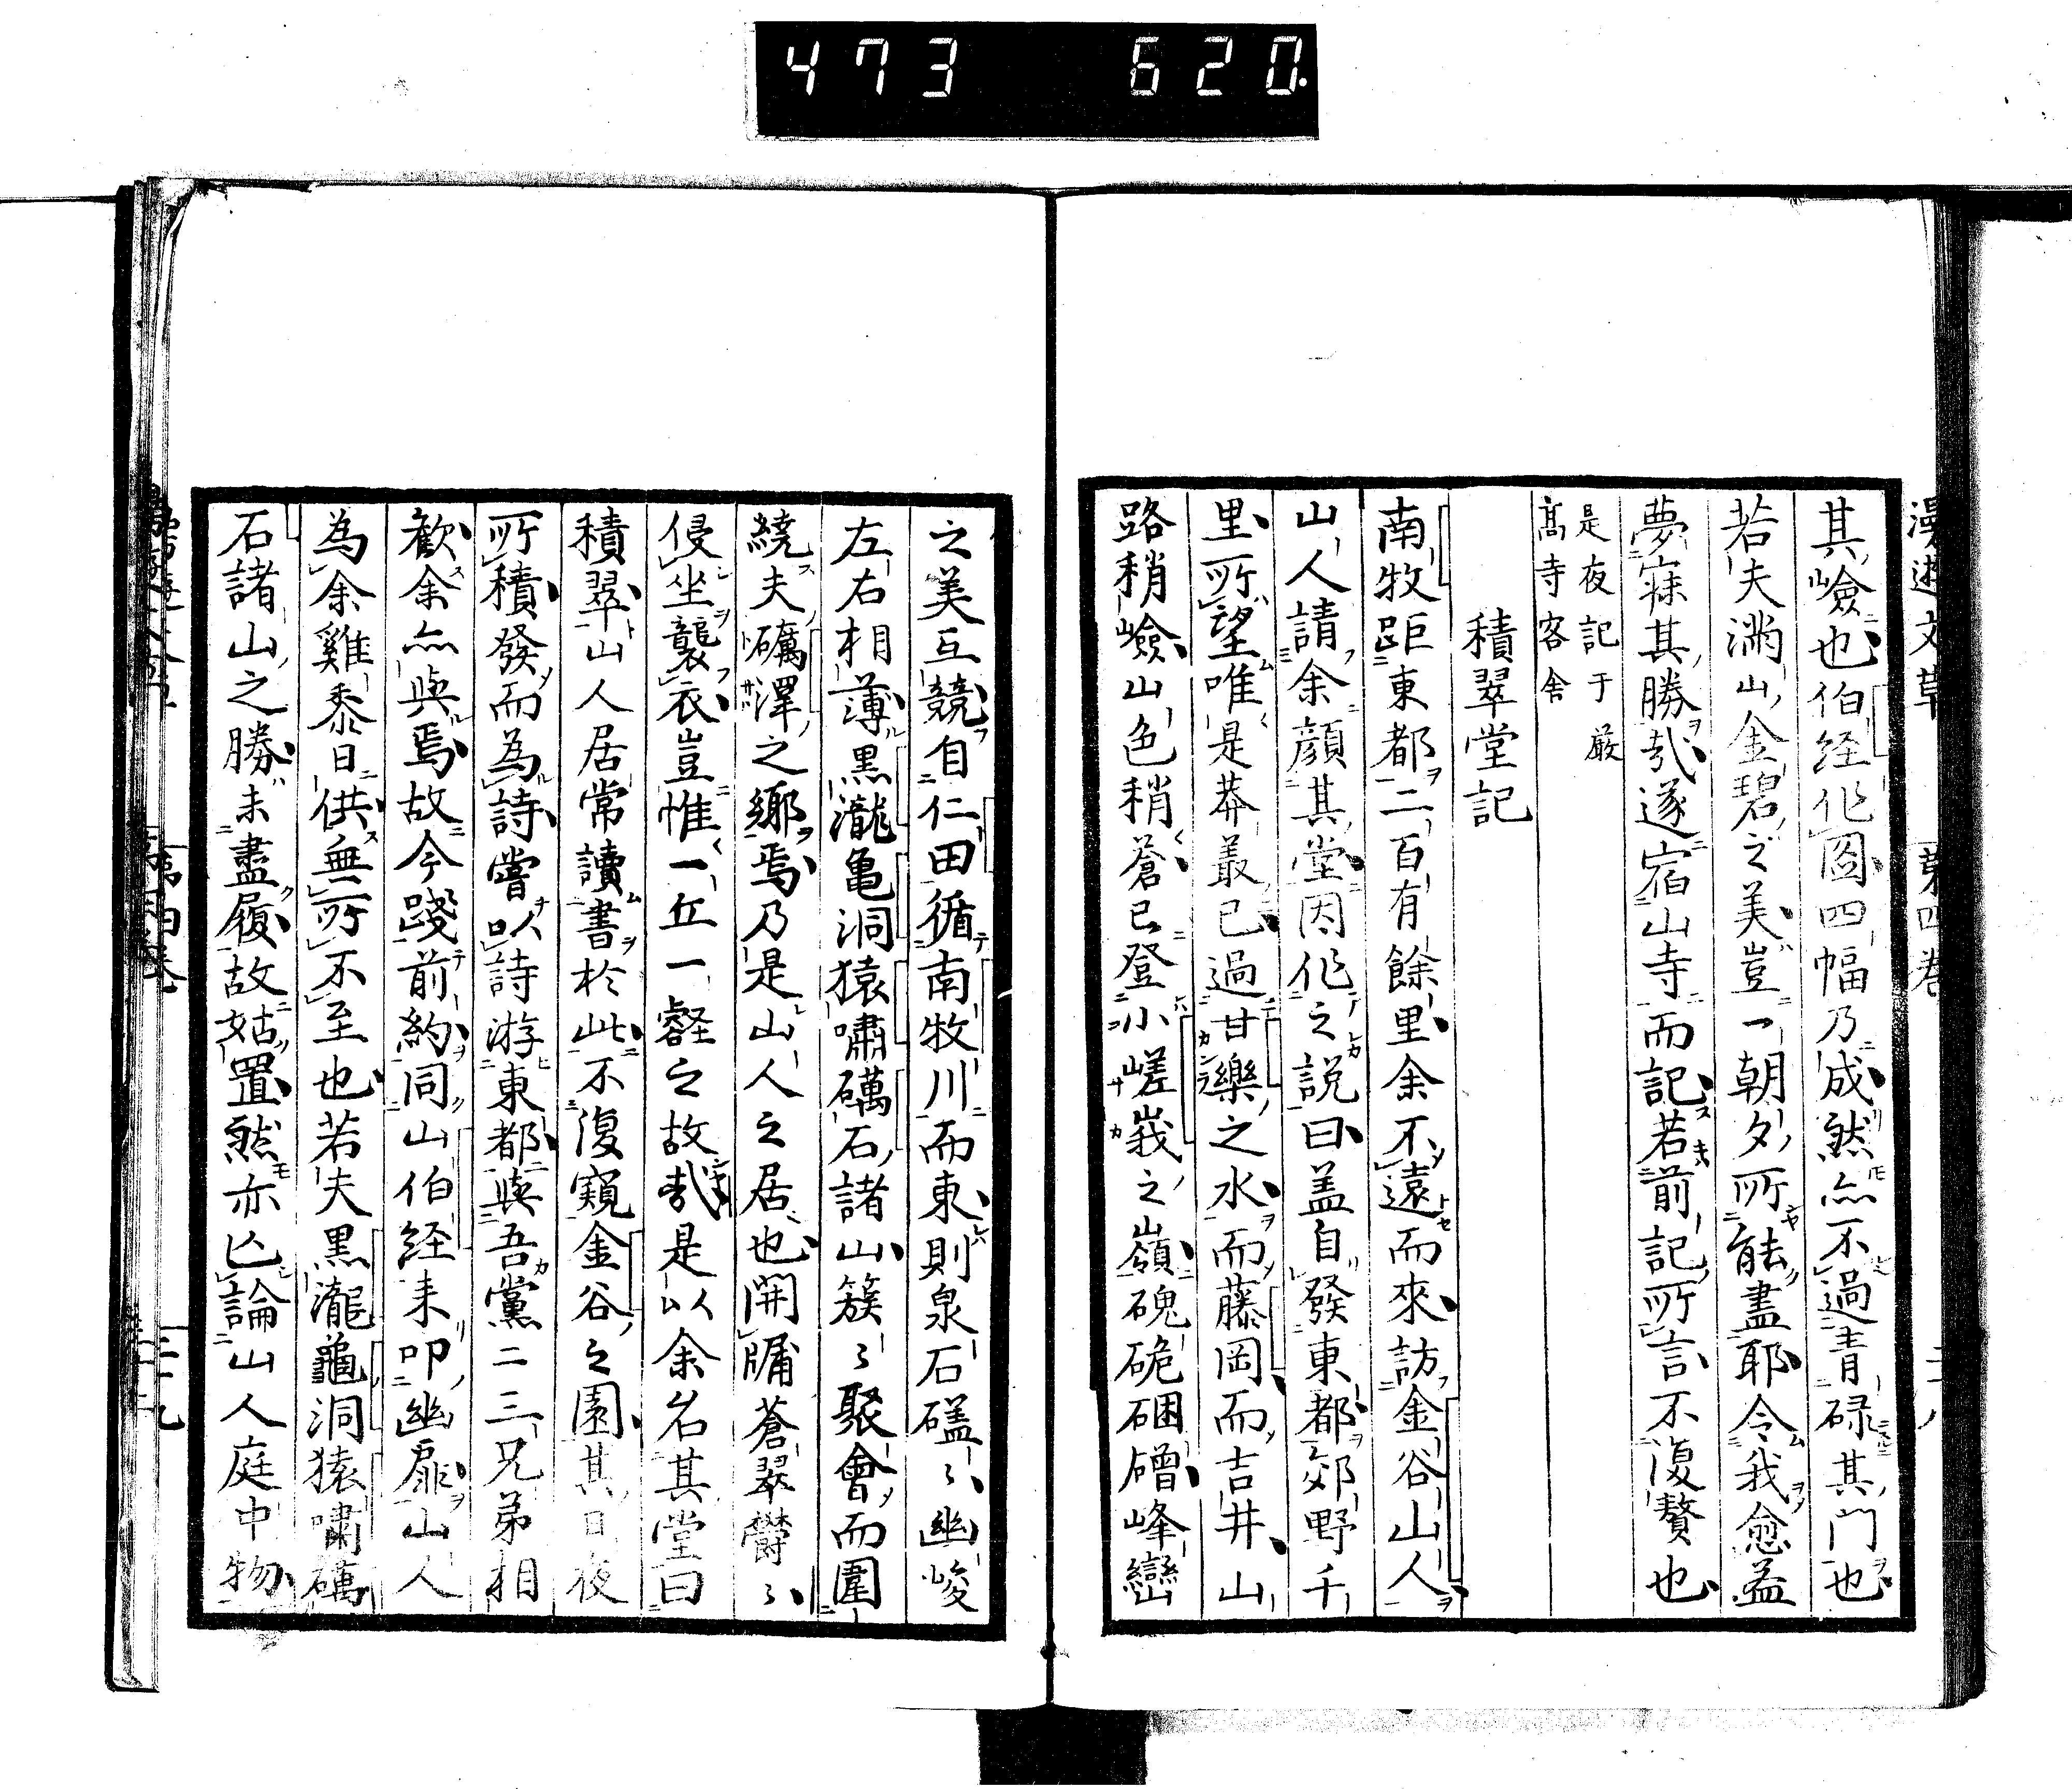 473 620.
漫遊文草 第四巻
其嶮也伯経作圖四幅乃成然亦不過青碌其門也
若夫滿山金碧之美豈一朝夕所能盡耶令我愈益
夢寐其勝哉遂宿山寺而記若前記所言不復贅也
是夜記于嚴
髙寺客舎
積翠堂記
南牧距東都二百有餘里余不遠而來訪金谷山人
山人請余顔其堂因作之説曰盖自發東都郊野千
里所望唯是莽叢已過甘樂之水而藤岡而吉井山
路稍嶮山色稍蒼已登小嵯峩之嶺磈硊硱磳峰巒
之美互競自仁田循南牧川而東則泉石磋〻幽峻
左右相薄黒瀧亀洞猿嘯礪石諸山簇〻聚會而圍
繞夫礪澤之郷焉乃是山人之居也開牖蒼翠欝〻
侵坐襲衣豈惟一丘一壑之故哉是以余名其堂曰
積翠山人居常讀書於此不復窺金谷之園其日夜
所積發而為詩嘗以詩游東都與吾黨二三兄弟相
歡余亦與焉故今踐前約同山伯経来叩幽扉山人
為余雞黍日供無所不至也若夫黒瀧龜洞猿嘯礪
石諸山之勝未盡履故姑置然亦亡論山人庭中物